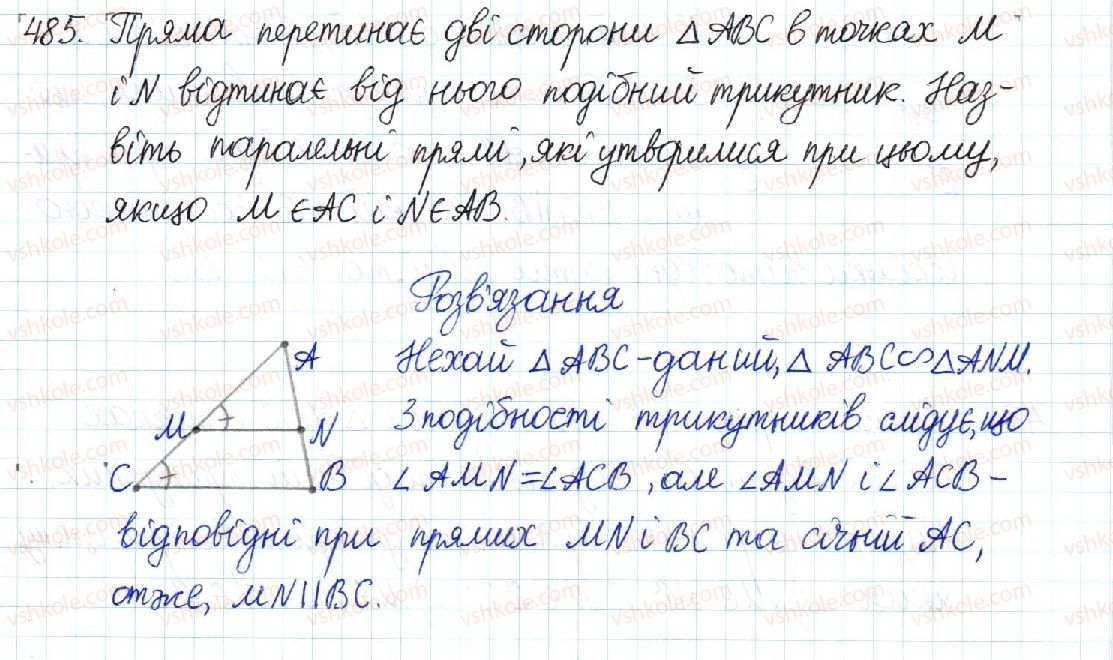 485. Пряма перетинає дві сторони △ABC в точках M
і N відтинає від нього подібний трикутник. Наз-
віть паралельні прямі, які утворилися при цьому,
якщо M ∈ AC і N ∈ AB.
Розв'язання
Нехай △ ABC - даний, △ ABC ∽ △ANM.
З подібності трикутників слідує, що
∠ AMN = ∠ACB, але ∠AMN і ∠ ACB -
відповідні при прямих MN і BC та січній AC,
отже, MN || BC.
A
M
N
C
B
vshkole.com